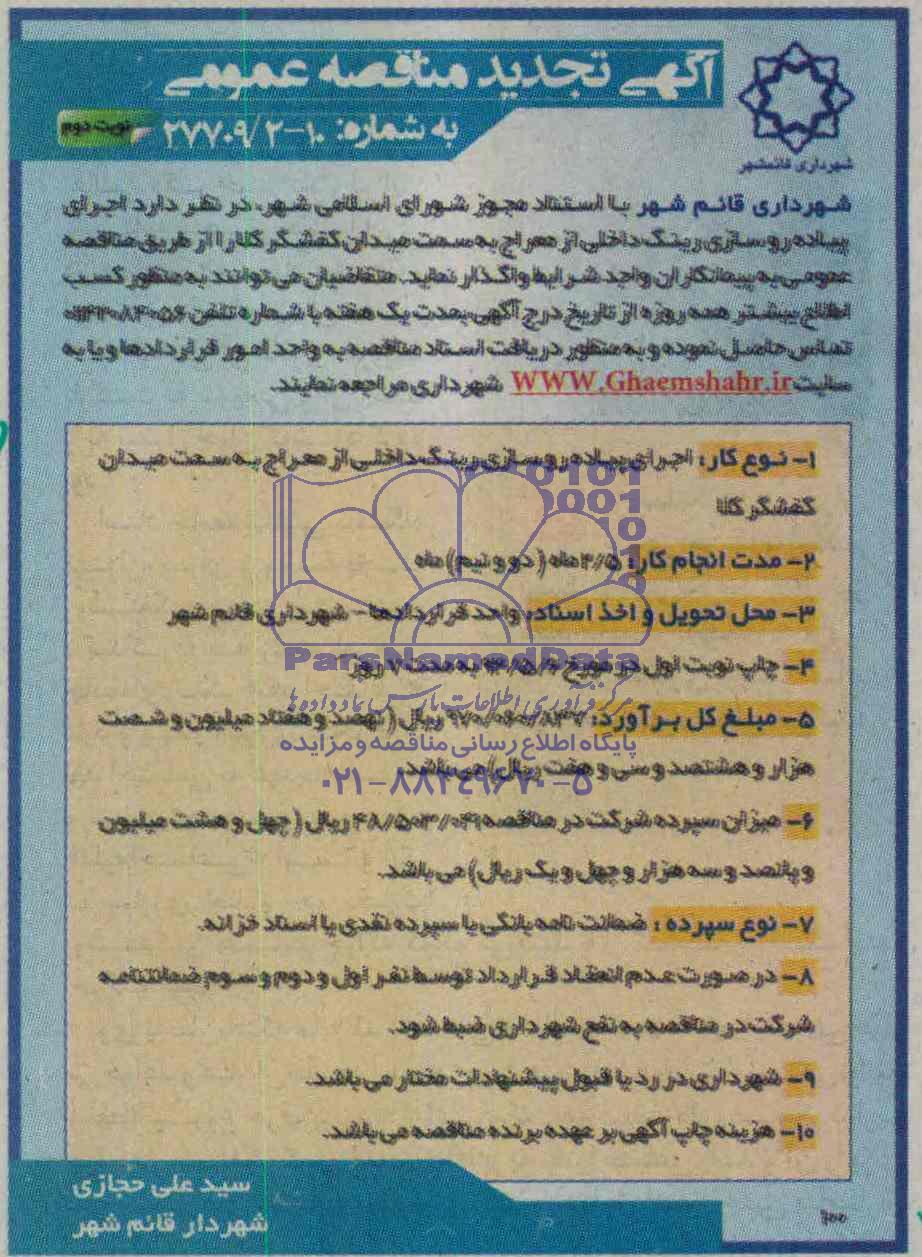 آگهی تجدید مناقصه عمومی
به شماره: ۱۰-۲۷۷۰۹/۲
نوبت دوم
شهرداری قائمشهر
شهرداری قائم شهر با استناد مجوز شورای اسلامی شهر، در نظر دارد اجرای
پیاده رو سازی رینگ داخلی از معراج به سمت میدان کفشگر کلا را از طریق مناقصه
عمومی به پیمانکاران واجد شرایط واگذار نماید. متقاضیان می توانند به منظور کسب
اطلاع بیشتر همه روزه از تاریخ درج آگهی بمدت یک هفته با شماره تلفن
تماس حاصل نموده و به منظور دریافت اسناد مناقصه به واحد امور قراردادها و یا به
سایت WWW.Ghaemshahr.ir شهرداری مراجعه نمایند.
۱- نوع کار: اجرای پیاده رو سازی رینگ داخلی از معراج به سمت میدان
کفشگر کلا
۲- مدت انجام کار: ۲/۵ ماه (دو و نیم) ماه
۳- محل تحویل و اخذ اسناد: واحد قراردادها - شهرداری قائم شهر
۴- چاپ نوبت اول در مورخ به مدت ۷ روز
۵- مبلغ کل برآورد: ۹۷۰/۰۶۰/۸۳۷ ریال (نهصد و هفتاد میلیون و شصت
هزار و هشتصد و سی و هفت ریال) می باشد.
۶- میزان سپرده شرکت در مناقصه ۴۸/۵۰۳/۰۴۱ ریال (چهل و هشت میلیون
و پانصد و سه هزار و چهل و یک ریال) می باشد.
۷- نوع سپرده : ضمانت نامه بانکی یا سپرده نقدی یا اسناد خزانه.
۸- در صورت عدم انعقاد قرارداد توسط نفر اول و دوم و سوم ضمانتنامه
شرکت در مناقصه به نفع شهرداری ضبط شود.
۹- شهرداری در رد یا قبول پیشنهادات مختار می باشد.
۱۰- هزینه چاپ آگهی بر عهده برنده مناقصه می باشد.
سید علی حجازی
شهردار قائم شهر
ParsNamadData
مرکز فرآوری اطلاعات پارس نماد داده ها
پایگاه اطلاع رسانی مناقصه و مزایده
۰۲۱-۸۸۳٤۹۶۷۰-۵